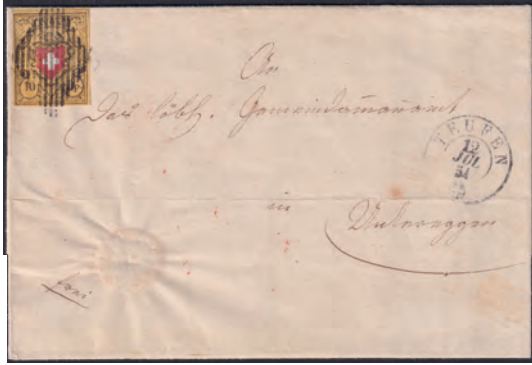 10
An
Das löbl. Gemeindamanamt
TEUFEN
12
JUL
51
in
Untereggen
frei